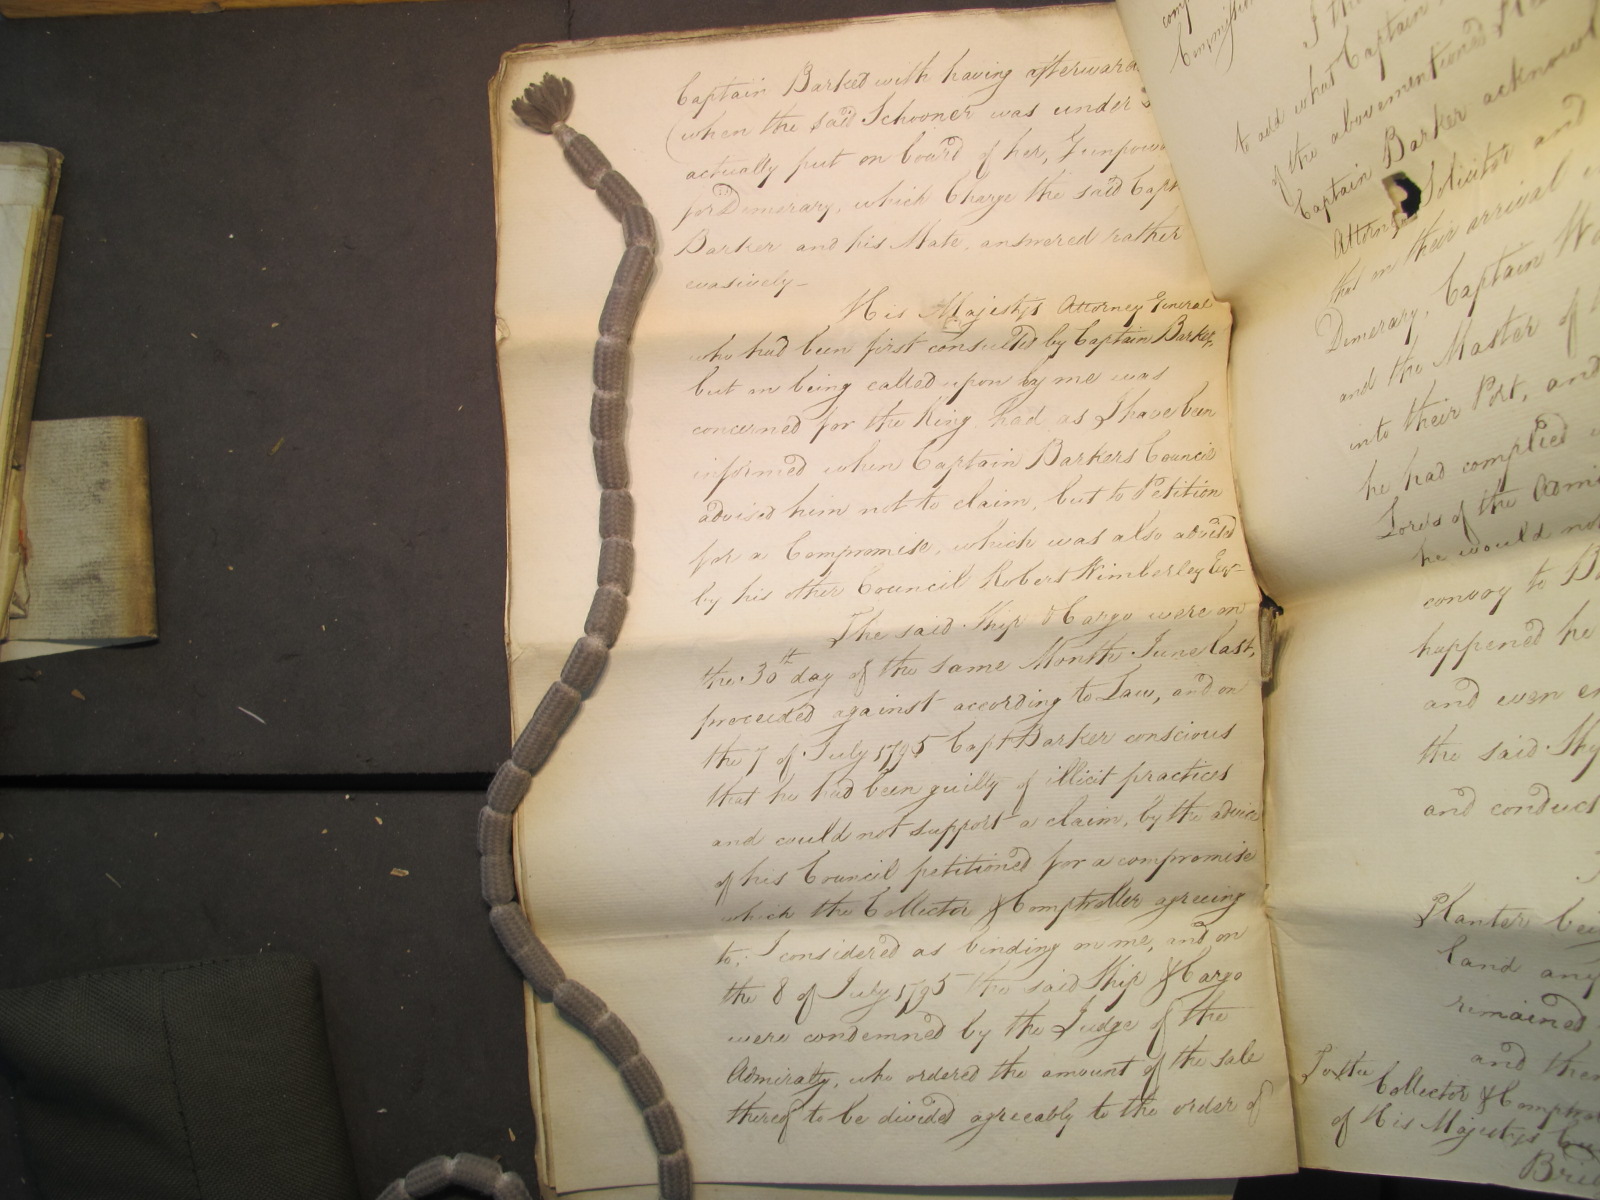 Captain Barker with having afterward
(when the said Schooner was under
actually put on board of her, Gunpow
for Dimerary, which Charge the said Capt
Barker and his Mate, answered rather
evasively—
His Majestys Attorney General
who had been first consulted by Captain Barker,
but on being called upon by me was
concerned for the King had as I have been
informed when Captain Barkers Council
advised him not to claim, but to Petition
for a Compromise, which was also advised
by his other Council Robert Wimberley Esqr
The said Ship & Cargo were on
the 30th day of the same Month June last,
proceeded against according to Law, and on
the 7 of July 1795 Capt Barker conscious
that he had been guilty of illicit practices
and could not support a claim, by the advice
of his Council petitioned for a compromise
which the Collector & Comptroller agreeing
to; I considered as binding on me, and on
the 8 of July 1795 the said Ship & Cargo
were condemned by the Judge of the
Admiralty, who ordered the amount of the sale
thereof to be divided agreeably to the order of
comp
Commission
I the
to add what Captain
of the abovementioned
Captain Barker acknowl
Attorney Solicitor and
that on their arrival
Dimerary, Captain
and the Master of
into their Port, and
he had complied
Lords of the Admi
he would not
convoy to B
happened he
and even
the said Sh
and conduct
Planter bei
land any
remained
and then
To the
Collector & Comptrol
of His Majestys
Bri